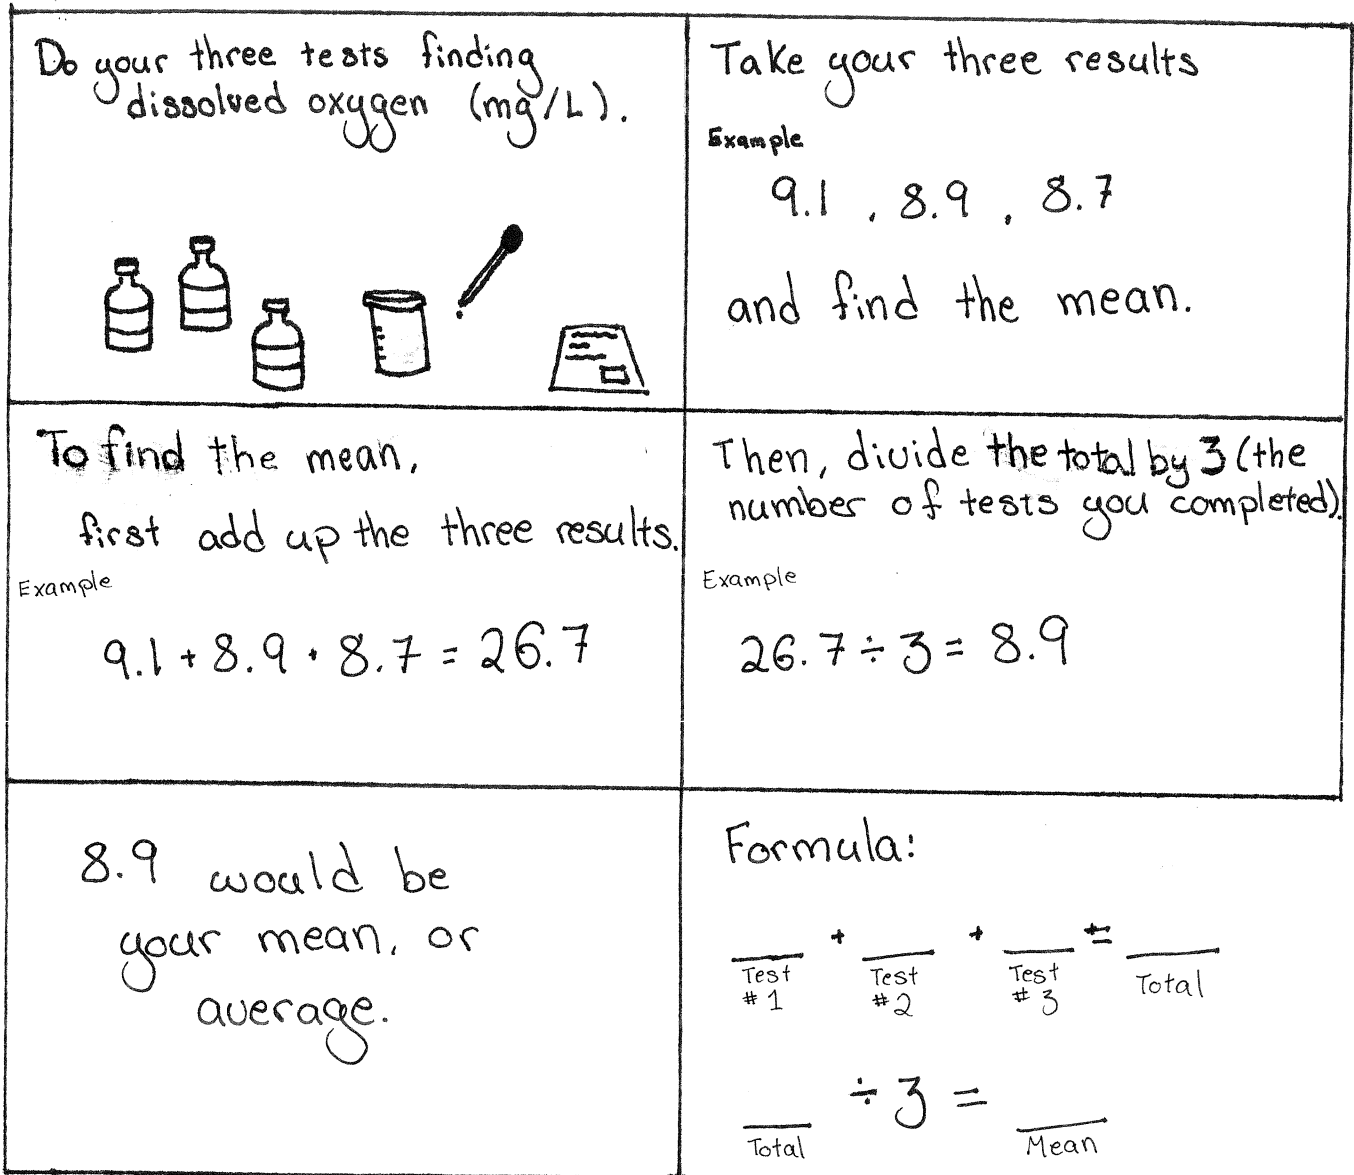 Do your three tests finding
dissolved oxygen (mg/L).
Take your three results
Example
9.1 , 8.9 , 8.7
and find the mean.
To find the mean,
first add up the three results.
Example
9.1 + 8.9 + 8.7 = 26.7
Then, divide the total by 3 (the
number of tests you completed).
Example
26.7 ÷ 3 = 8.9
8.9 would be
your mean, or
average.
Formula:
___ + ___ + ___ = ___
Test #1 Test #2 Test #3 Total
___ ÷ 3 = ___
Total Mean